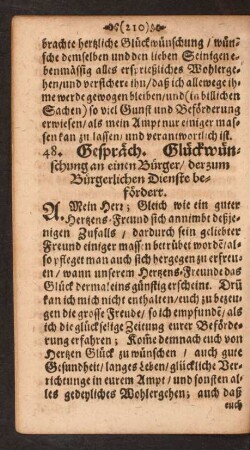 (210)
brachte hertzliche Glückwünschung / wün-
sche demselben und den lieben Seinigen e-
benmässig alles ersprießliches Wolerge-
hen / und versichere ihn / daß ich allewege ih-
me werde gewogen bleiben / und (in billichen
Sachen) so viel Gunst und Beförderung
erweisen / als mein Ampt nur einiger mas-
sen kan zu lassen / und verantwortlich ist.
48. Gespräch. Glückwün-
schung an einen Bürger / der zum
Bürgerlichen Dienste be-
fördert.
A. Mein Herr; Gleich wie ein guter
Hertzens-Freund sich annimbt desje-
nigen Zufalls / dardurch sein geliebter
Freund einiger massen betrübet worden / al-
so pfleget man auch sich hergegen zu erfreu-
en / wann unserem Hertzens-Freunde das
Glück dermaleins günstig erscheinet. Drü
kan ich mich nicht enthalten / euch zu bezeu-
gen die grosse Freude / so ich empfunden / als
ich die glückselige Zeitung eurer Beförde-
rung erfahren; Kome demnach euch von
Hertzen Glück zu wünschen / auch gute
Gesundheit / langes Leben / glückliche Ver-
richtunge in eurem Ampt / und sonsten al-
les gedeyliches Wohlergehen; auch daß
euch